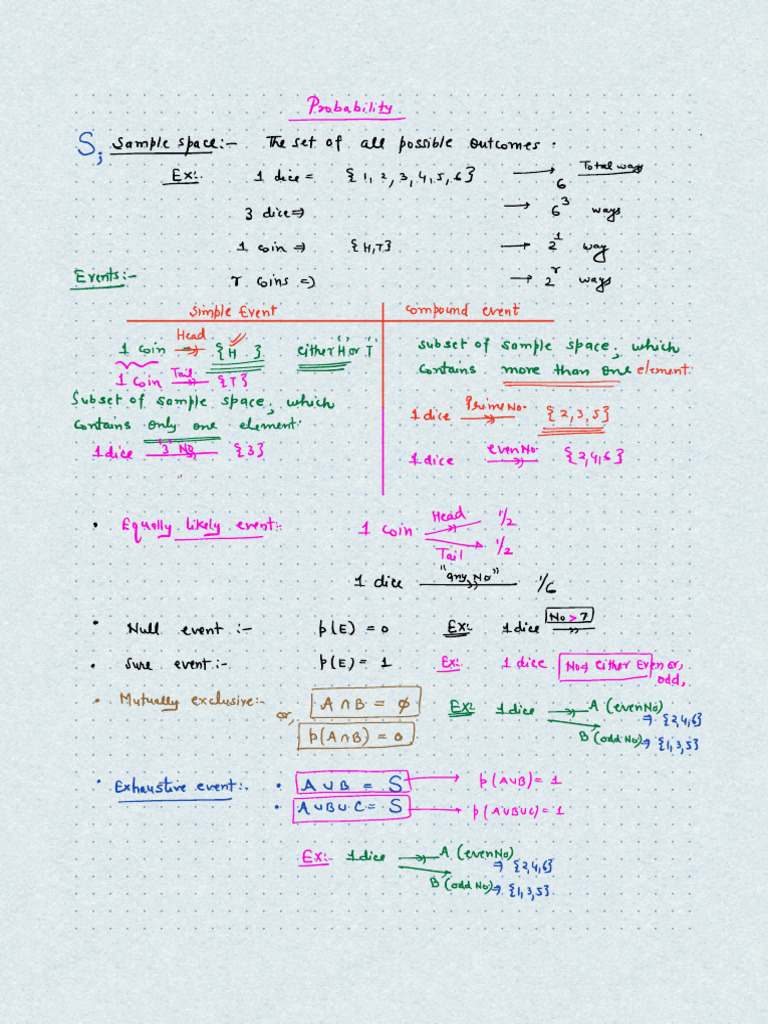 Probability
S; Sample space:- The set of all possible outcomes.
Ex:. 1 dice = {1, 2, 3, 4, 5, 6} → 6 Total ways
3 dice ⇒ → 6³ ways
1 coin ⇒ {H,T} → 2¹ way
Events:-
r coins ⇒ → 2ʳ ways
Simple Event
1 coin Head {H} either "H" or "T"
1 Coin Tail {T}
Subset of sample space, which
contains only one element.
1 dice "3" No {3}
compound event
subset of sample space, which
contains more than one element.
1 dice Prime No. {2, 3, 5}
1 dice even No. {2,4,6}
• Equally likely event:- 1 coin Head 1/2
Tail 1/2
1 dice "any No" 1/6
• Null event :- p(E) = 0 Ex:. 1 dice No > 7
• Sure event:- p(E) = 1 Ex:. 1 dice No⇒ either Even or,
odd,
• Mutually exclusive:- A ∩ B = ϕ Ex:. 1 dice A (even No) ⇒ {2,4,6}
or, p(A∩B) = 0 B (odd No) ⇒ {1,3,5}
• Exhaustive event:. • A ∪ B = S → p(A∪B) = 1
• A∪B∪C = S → p(A∪B∪C) = 1
Ex:. 1 dice A (even No) ⇒ {2,4,6}
B (odd No) ⇒ {1,3,5}